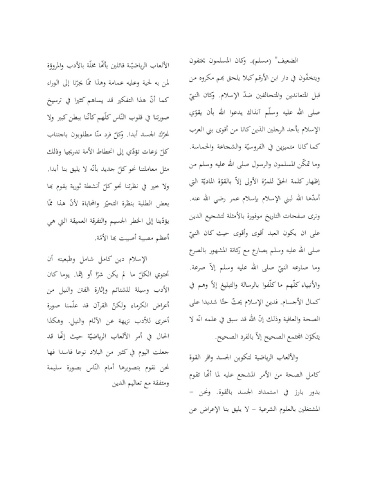 الضعيف" (مسلم). وكان المسلمون يختفون
ويتخفّون في دار ابن الأرقم كيلا يلحق بهم مكروه من
قبل المتعاندين والمتخالفين ضدّ الإسلام. وكان النبيّ
صلى الله عليه وسلّم آنذاك يدعوا الله بأن يقوّي
الإسلام بأحد الرجلين الذين كانا من أقوى بني العرب
كما كانا متميزين في الفروسيّة والشجاعة والحماسة.
وما تمكّن المسلمون والرسول صلى الله عليه وسلم من
إظهار كلمة الحقّ للمرّة الأولى إلاّ بالقوّة الماديّة التي
أمدّها الله لبني الإسلام بإسلام عمر رضي الله عنه.
ونرى صفحات التاريخ موفورة بالأمثلة لتشجيع الدين
على ان يكون العبد أقوى وأقوى حيث كان النبيّ
صلى الله عليه وسلم يصارع مع ركانة المشهور بالصرع
وما صارعه النبيّ صلى الله عليه وسلم إلاّ صرعة.
والأنبياء كلّهم ما كلّفوا بالرسالة والتبليغ إلاّ وهم في
كمال الأجسام. فدين الإسلام يحثّ حثّا شديدا على
الصحة والعافية وذلك إنّ الله قد سبق في علمه انّه لا
يتكوّن المجتمع الصحيح إلاّ بالفرد الصحيح.
والألعاب الرياضية لتكوين الجسد وافر القوة
كامل الصحة من الأمر المشجع عليه لما أنّها تقوم
بدور بارز في استمداد الجسد بالقوة. ونحن –
المشتغلين بالعلوم الشرعية – لا يليق بنا الإعراض عن
الألعاب الرياضيّة قائلين بأنّها مخلّة بالأدب والمروؤة
لمن به لحية وعليه عمامة وهذا ممّا يجرّنا إلى الوراء.
كما أنّ هذا التفكير قد يساهم كثيرا في ترسيخ
صورتنا في قلوب النّاس كلّهم كأنّنا ببطن كبير ولا
نحرّك الجسد أبدا. وكلّ فرد منّا مطلوبون باجتناب
كلّ نزعات تؤدّي إلى انحطاط الأمة تدريجيا وذلك
مثل معاملتنا نحو كلّ جديد بأنّه لا يليق بنا أبدا.
ولا خير في نظرتنا نحو كلّ أنشطة ثورية يقوم بها
بعض الطلبة بنظرة التنحيّز والمحاباة لأنّ هذا ممّا
يؤدّينا إلى الخطر الجسيم والتفرقة العميقة التي هي
أعظم مصيبة أصيبت بها الأمّة.
الإسلام دين كامل شامل وطبيعته أن
تحتوي الكلّ ما لم يكن شرّا أو إثما. يوما كان
الأدب وسيلة للشتائم وإثارة الفتن والنيل من
أعراض الكرماء ولكنّ القرآن قد علّمنا صورة
أخرى للأدب نزيهة عن الآثام والنيل. وهكذا
الحال في أمر الألعاب الرياضيّة حيث إنّها قد
جعلت اليوم في كثير من البلاد نوعا فاسدا فها
نحن نقوم بتصويرها أمام النّاس بصورة سليمة
ومتفقة مع تعاليم الدين